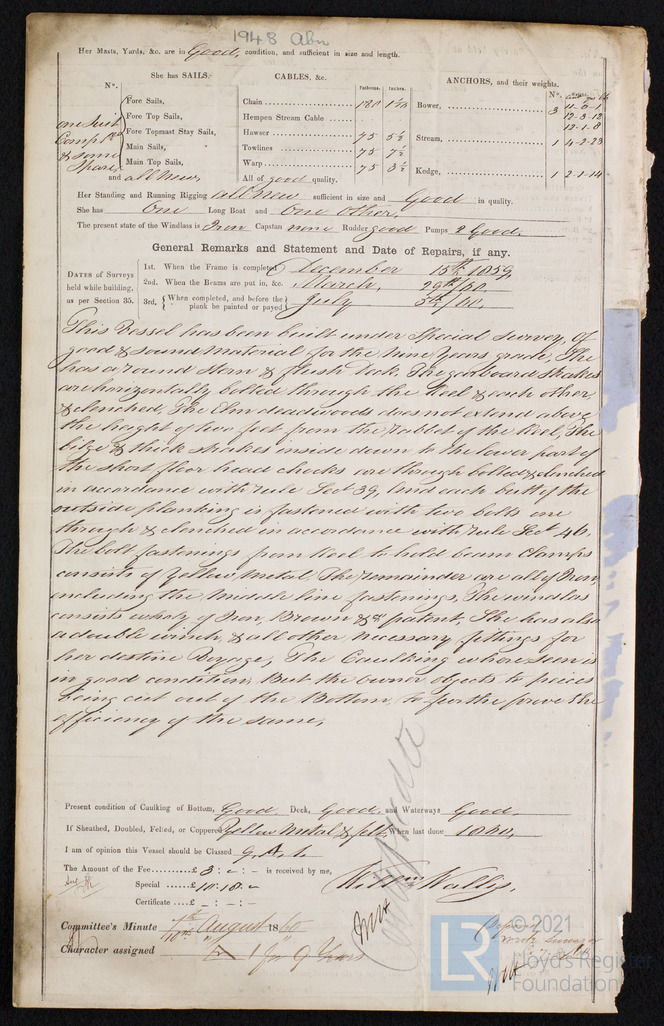 1948 Abn
Her Masts, Yards, &c. are in Good, condition, and sufficient in size and length.
She has SAILS. CABLES, &c. ANCHORS, and their weights.
N°. Fathoms. Inches. N°.
Fore Sails, Chain 180 Bower, 3 11-0-1
one Suit Fore Top Sails, Hempen Stream Cable 12-3-12
Comp Fore Topmast Stay Sails, Hawser 75 5½ 12-1-8
& some Main Sails, Towlines 75 7½ Stream, 1 4-2-23
Main Top Sails, Warp 75 3½
and all New All of good quality. Kedge, 1 2-1-14
Her Standing and Running Rigging all New sufficient in size and Good in quality.
She has One Long Boat and One other.
The present state of the Windlass is Iron Capstan none Rudder good Pumps 2 Good.
General Remarks and Statement and Date of Repairs, if any.
DATES of Surveys held while building, as per Section 35.
1st. When the Frame is completed December 15th 1859,
2nd. When the Beams are put in, &c. March, 29th/60.
3rd. When completed, and before the plank be painted or payed July 5th/60.
This Vessel has been built under Special Survey, Of
good & sound Material for the nine years grade, She
has a round Stern & flush deck. The garboard strakes
are horizontally bolted through the Keel & each other
& clenched, The Elm deadwoods does not extend above
the height of two feet from the rabbet of the Keel, The
bilge & thick strakes inside down to the lower part of
the short floor head chocks are through bolted & clenched
in accordance with rule Sect 39, And each butt of the
outside planking is fastened with two bolts one
through & clenched in accordance with rule Sect 46.
The bolt fastenings from Keel to hold beam Clamps
consists of Yellow Metal, The remainder are all of Iron,
including the Middle line fastenings, The windlas
consists wholy of Iron, Brown & Co patent, She has also
a double winch, & all other necessary fittings for
her destine Voyage, The Caulking where seen is
in good condition, But the owner objects to pieces
being cut out of the Bottom, to further prove the
efficiency of the same,
Present condition of Caulking of Bottom, Good Deck, Good, and Waterways Good,
If Sheathed, Doubled, Felted, or Coppered Yellow Metal & felt, When last done 1860,
I am of opinion this Vessel should be Classed 9 A 1
The Amount of the Fee £ 3 : - : - is received by me,
Special £ 10 : 10 : -
Certificate £ - : - : -
Wallis,
Committee's Minute 7th August 1860
Character assigned A 1 for 9 Years
LR
© 2021
Lloyd's Register
Foundation